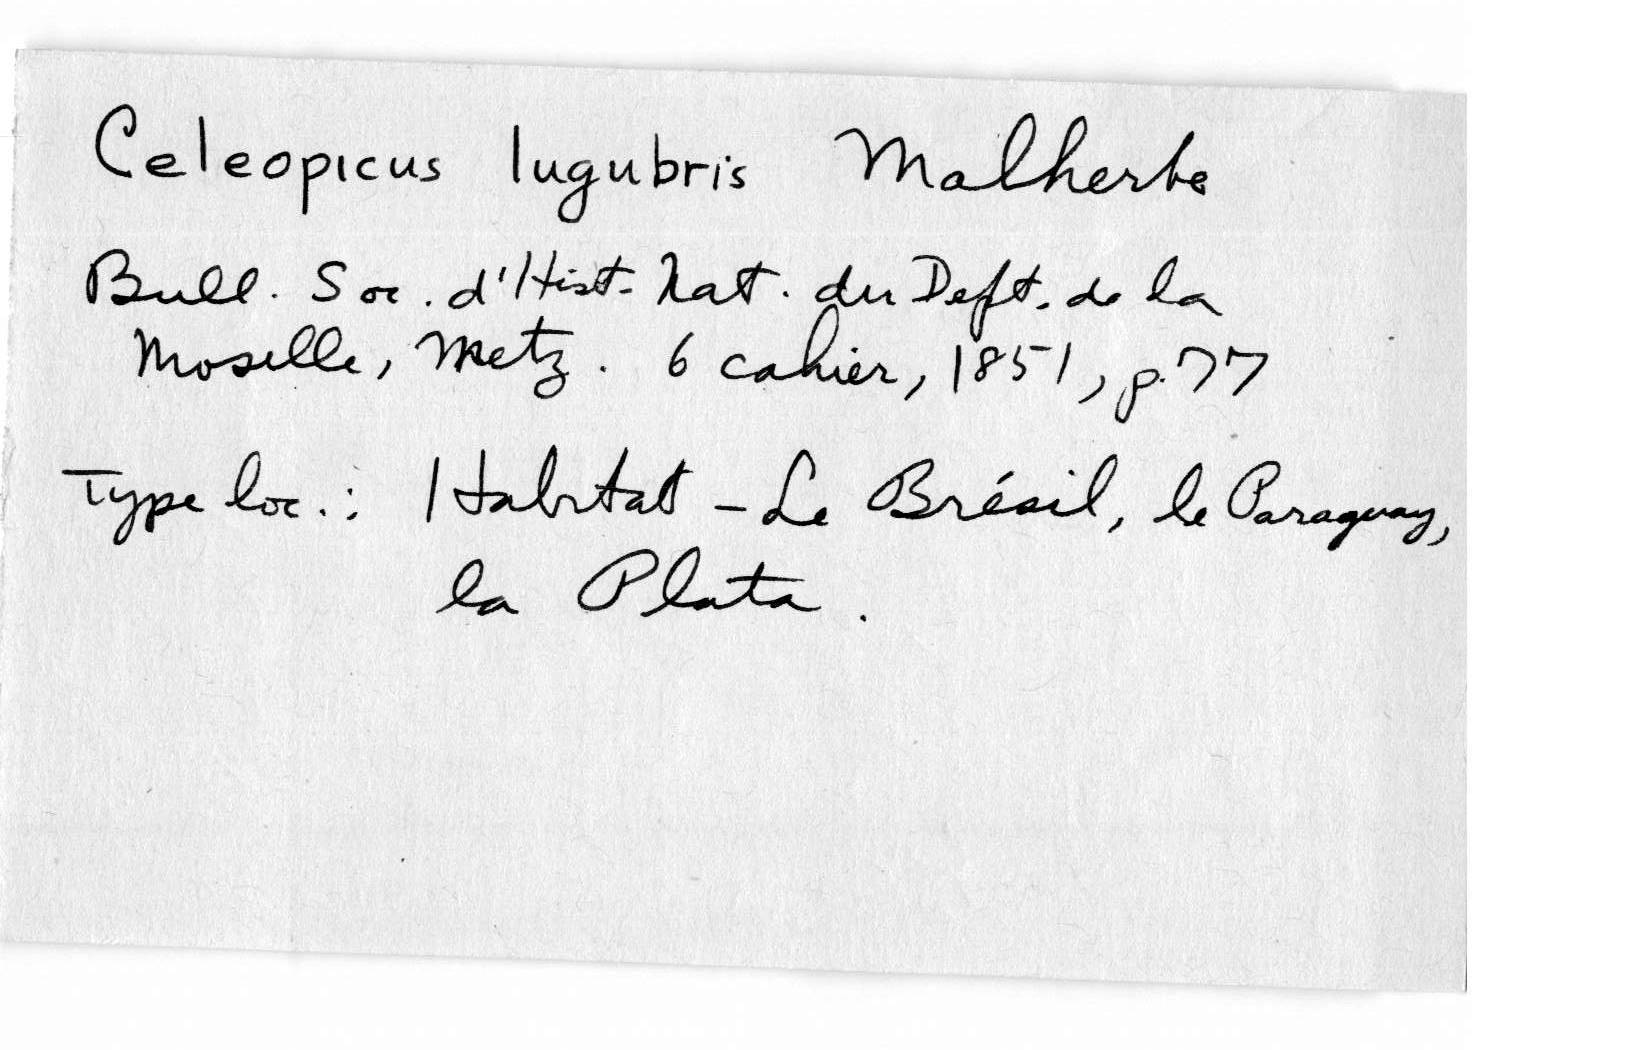 Celeopicus lugubris Malherbe
Bull. Soc. d'Hist. Nat. du Dept. de la
Moselle, Metz. 6 cahier, 1851, p. 77
Type loc.: Habitat - Le Brésil, le Paraguay,
la Plata.